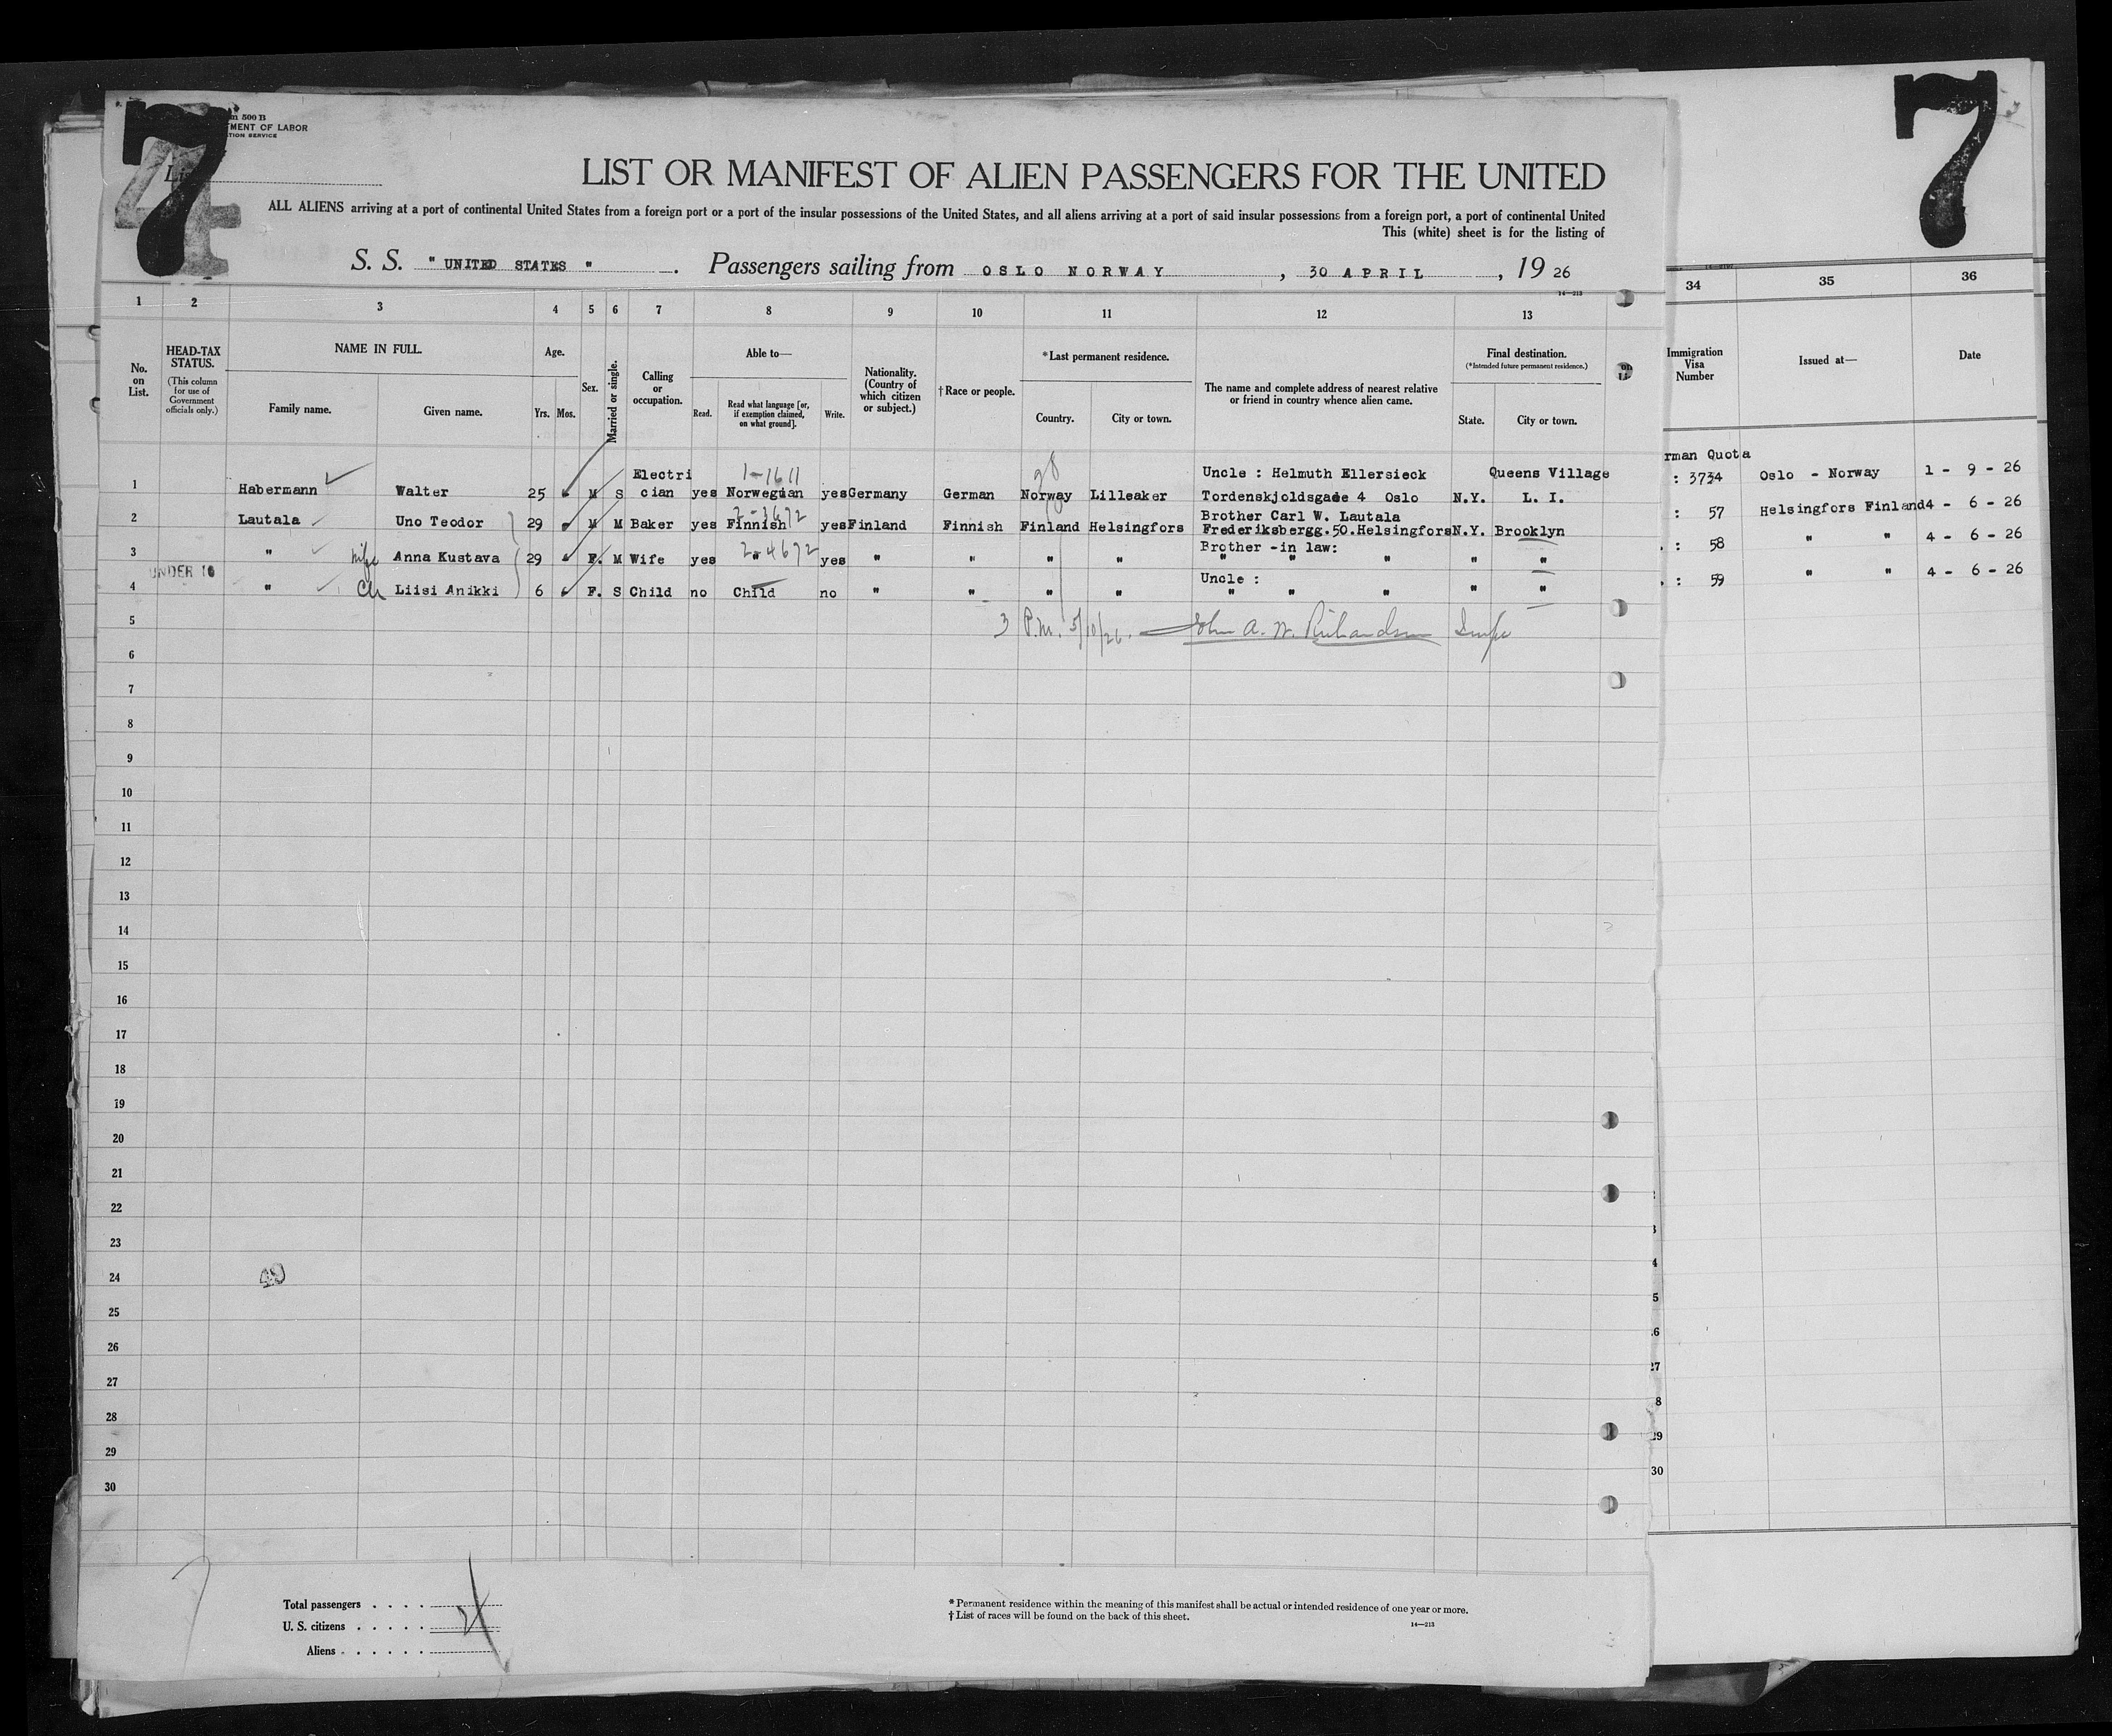 7
7
500 B
MENT OF LABOR
TION SERVICE
4
LIST OR MANIFEST OF ALIEN PASSENGERS FOR THE UNITED
ALL ALIENS arriving at a port of continental United States from a foreign port or a port of the insular possessions of the United States, and all aliens arriving at a port of said insular possessions from a foreign port, a port of continental United
This (white) sheet is for the listing of
S. S. " UNITED STATES " . Passengers sailing from OSLO NORWAY , 30 APRIL , 19 26
14—213
1 2 3 4 5 6 7 8 9 10 11 12 13 34 35 36
No. on List.
HEAD-TAX STATUS.
(This column for use of Government officials only.)
NAME IN FULL.
Family name. Given name.
Age.
Yrs. Mos.
Sex.
Married or single.
Calling or occupation.
Able to—
Read. Read what language [or, if exemption claimed, on what ground]. Write.
Nationality. (Country of which citizen or subject.)
†Race or people.
*Last permanent residence.
Country. City or town.
The name and complete address of nearest relative or friend in country whence alien came.
Final destination.
(*Intended future permanent residence.)
State. City or town.
Immigration Visa Number
Issued at—
Date
rman Quota
Electri 1-1611 Uncle : Helmuth Ellersieck Queens Village
1 Habermann Walter 25 M S cian yes Norwegian yes Germany German Norway Lilleaker Tordenskjoldsgade 4 Oslo N.Y. L. I. : 3734 Oslo - Norway 1 - 9 - 26
2-3672 Brother Carl W. Lautala
2 Lautala Uno Teodor 29 M M Baker yes Finnish yes Finland Finnish Finland Helsingfors Frederiksbergg.50.Helsingfors N.Y. Brooklyn : 57 Helsingfors Finland 4 - 6 - 26
2-4672 Brother -in law:
3 " wife Anna Kustava 29 F. M Wife yes " yes " " " " " " " " " : 58 " " 4 - 6 - 26
UNDER 16 Uncle :
4 " Ch Liisi Anikki 6 F. S Child no Child no " " " " " " " " " : 59 " " 4 - 6 - 26
5 3 P.M. 5/10/26. John A. W. Richardson Insp
6
7
8
9
10
11
12
13
14
15
16
17
18
19
20
21
22
23
24 49
25
26
27
28
29
30
30
Total passengers . . . .
U. S. citizens . . . . .
Aliens . . . . . .
*Permanent residence within the meaning of this manifest shall be actual or intended residence of one year or more.
†List of races will be found on the back of this sheet.
14—213